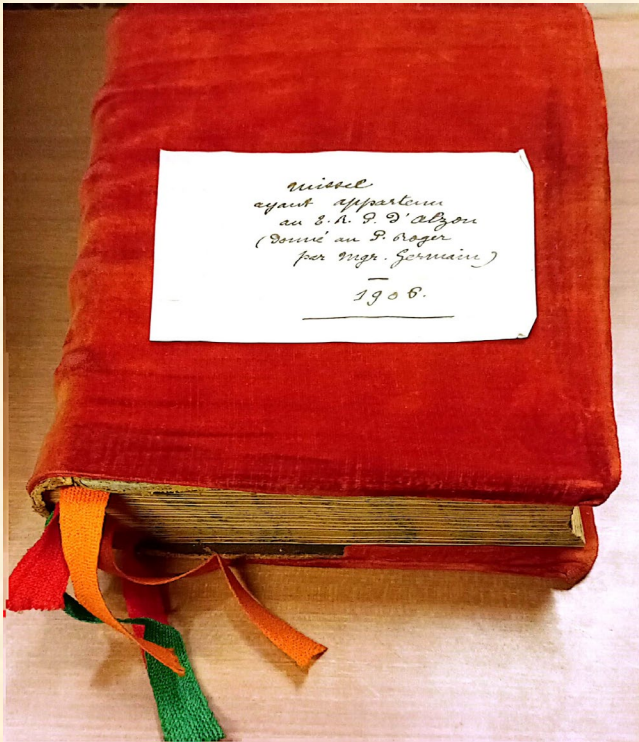 missel
ayant appartenu
au T. R. P. d'Alzon
(donné au P. Roger
par Mgr. Germain)
1906.